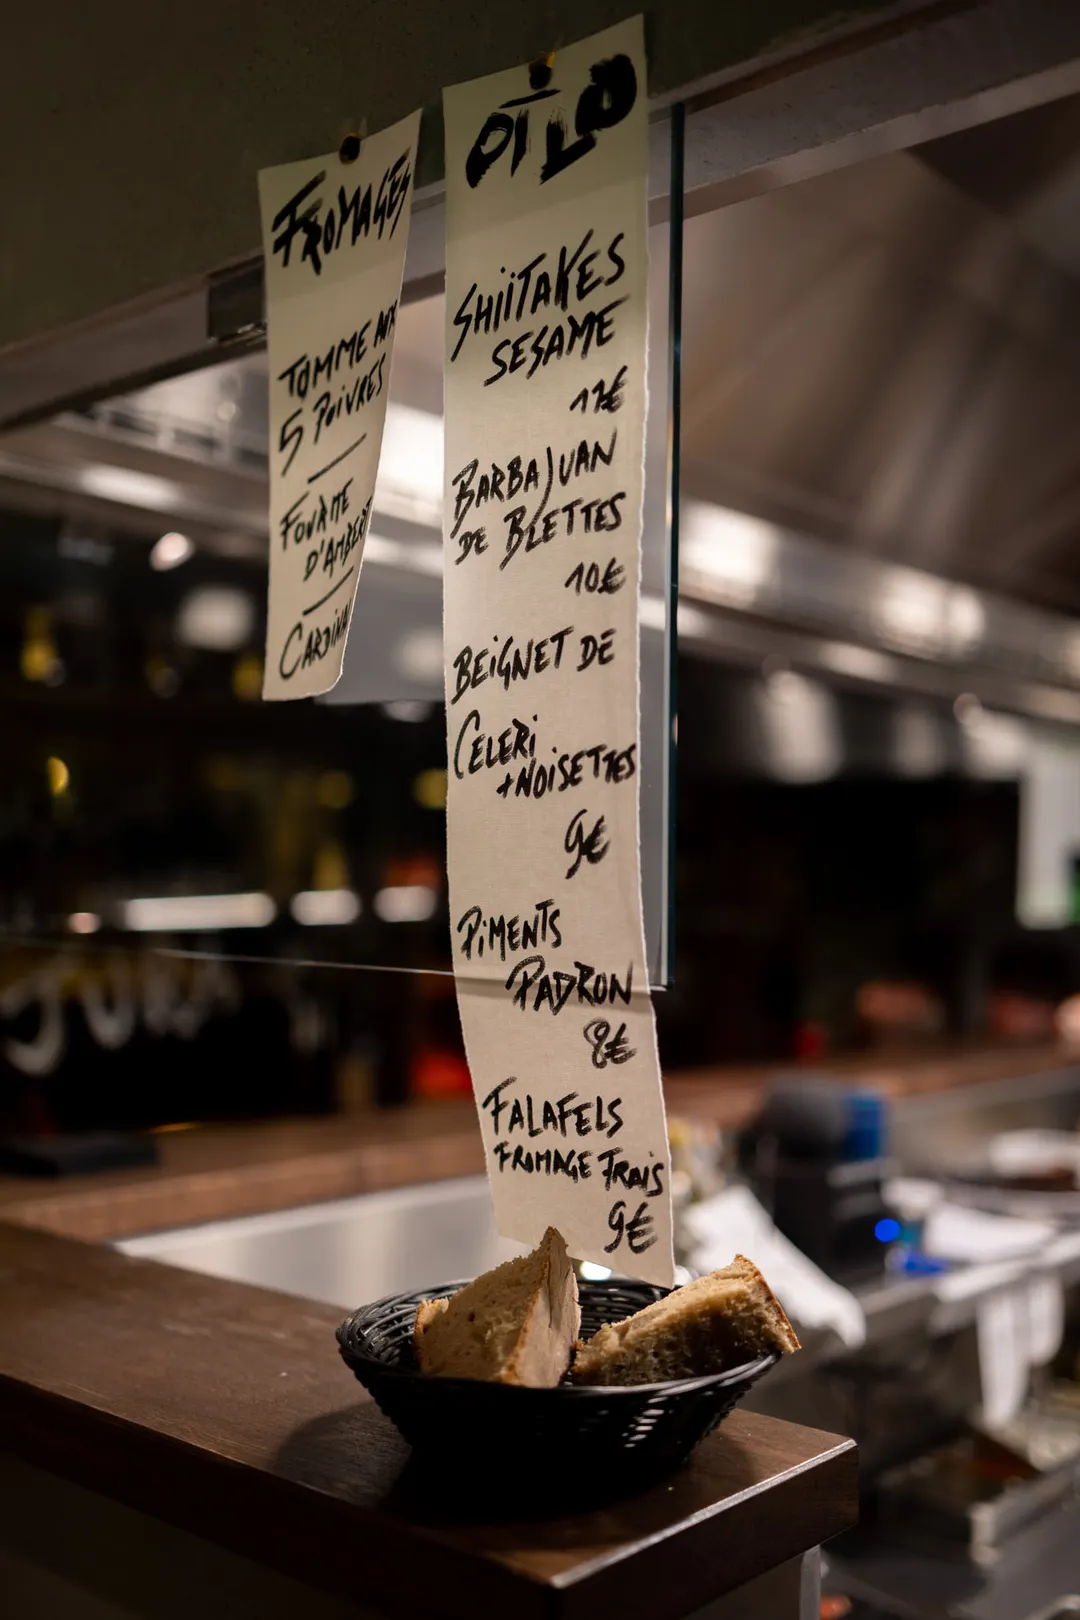 FROMAGES
TOMME AUX
5 POIVRES
FOURME
D'AMBERT
CARDINAL
SHiiTAKES
SESAME
17€
BARBAJUAN
DE BLETTES
10€
BEIGNET DE
CELERi
+NOISETTES
9€
PiMENTS
PADRON
8€
FALAFELS
FROMAGE FRAiS
9€
JURA